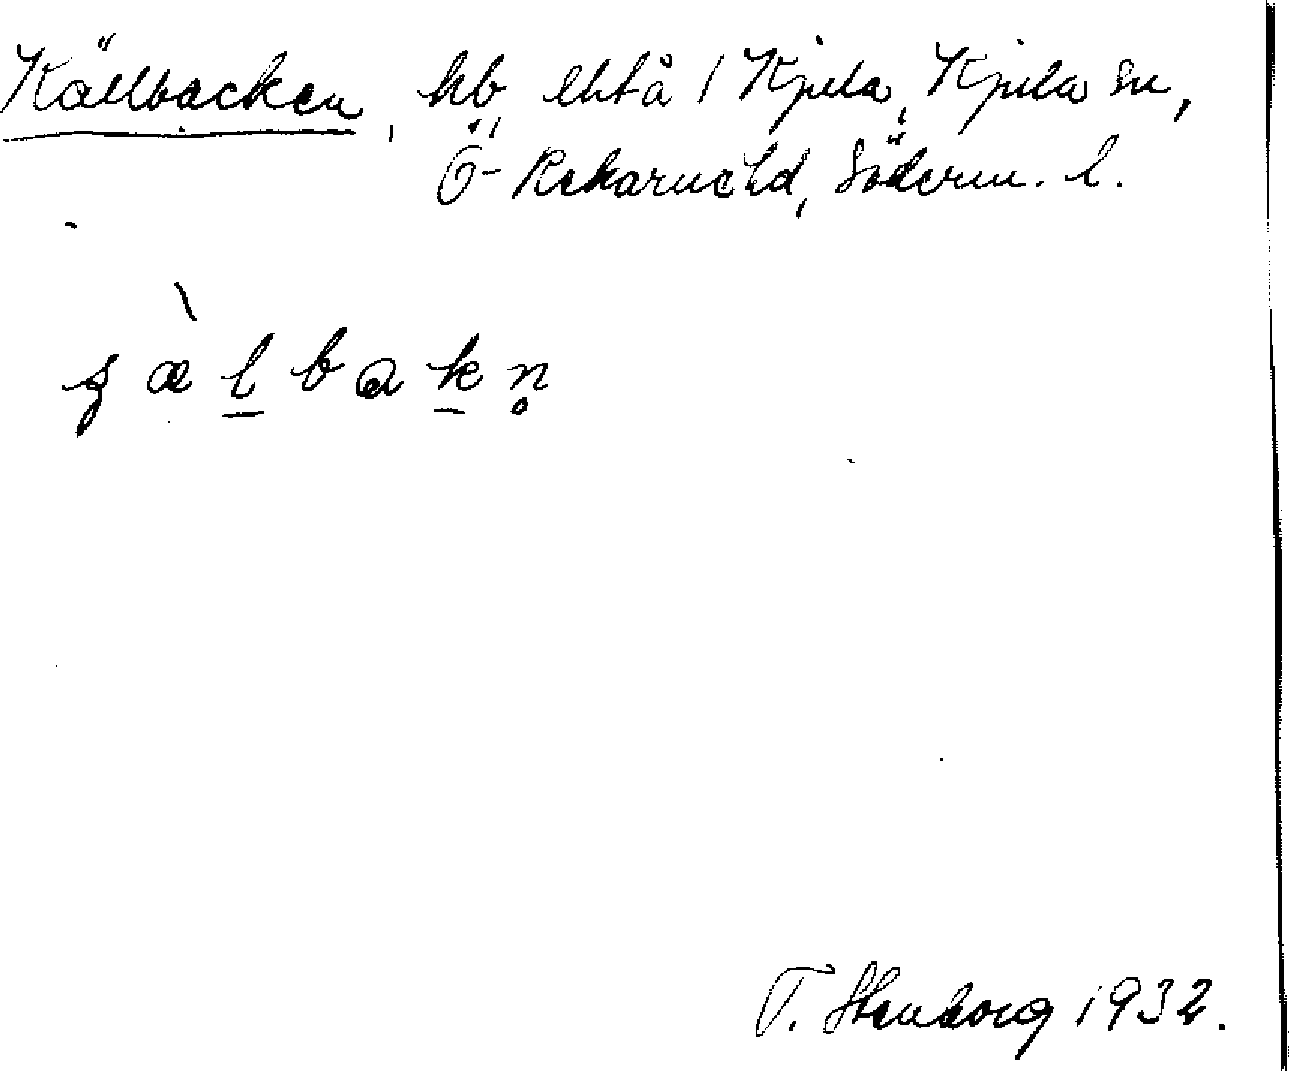 Källbacken, hb, Ehtå i Kjula, Kjula sn,
Ö-Rekarne hd, Söderm. l.
ʂ æ̀ l̲ b a k̲ n̥
T. Stenborg 1932.